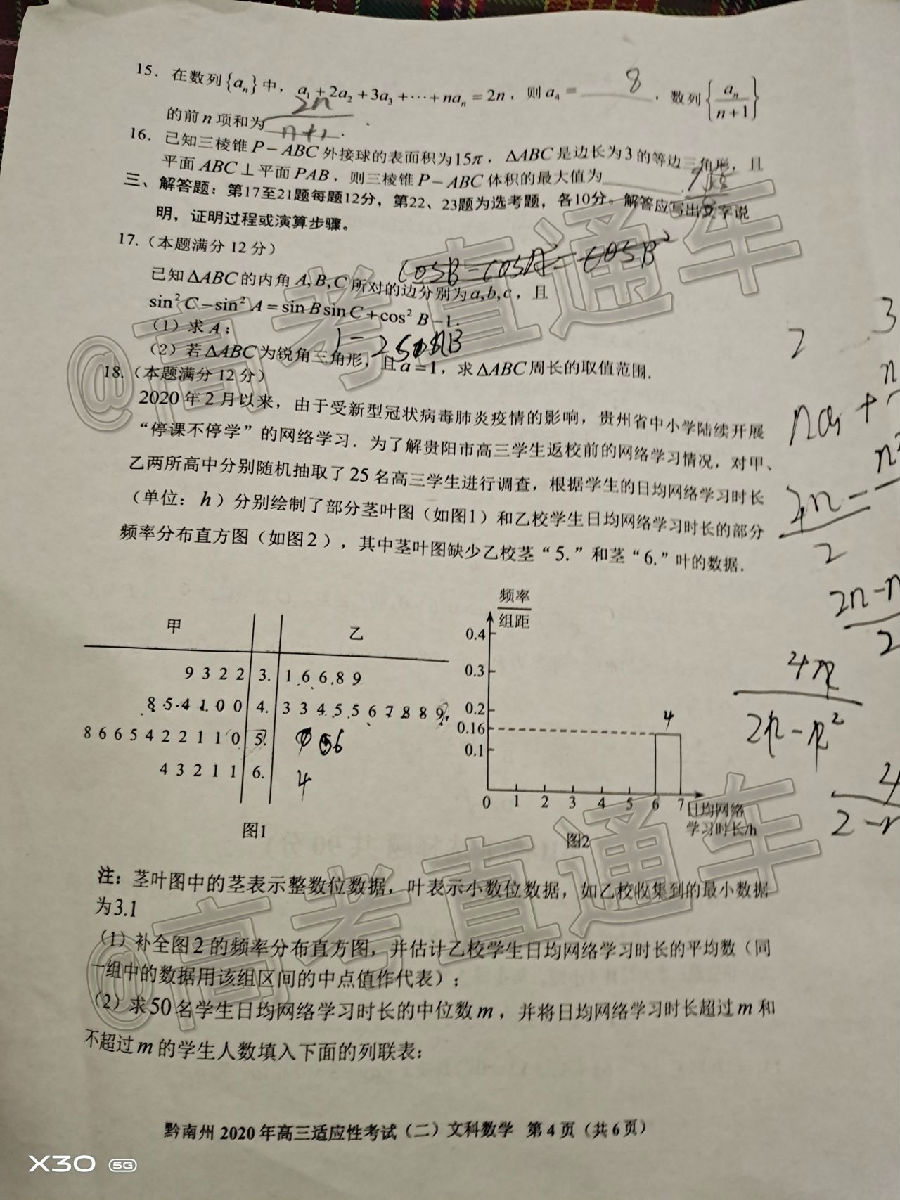 15. 在数列{aₙ}中，a₁+2a₂+3a₃+⋯+naₙ=2n，则aₙ=____8____，数列{aₙ/(n+1)}
的前n项和为 2n/(n+1) .
16. 已知三棱锥P－ABC外接球的表面积为15π，△ABC是边长为3的等边三角形，且
平面ABC⊥平面PAB，则三棱锥P－ABC体积的最大值为
三、解答题：第17至21题每题12分，第22、23题为选考题，各10分。解答应写出文字说
明，证明过程或演算步骤。
17.（本题满分12分）
cosB－cosA²＝cosB²
已知△ABC的内角A,B,C所对的边分别为a,b,c，且
sin²C－sin²A＝sinBsinC＋cos²B－1.
（1）求A；
（2）若△ABC为锐角三角形，且a＝1，求△ABC周长的取值范围.
18.（本题满分12分）
2020年2月以来，由于受新型冠状病毒肺炎疫情的影响，贵州省中小学陆续开展
“停课不停学”的网络学习．为了解贵阳市高三学生返校前的网络学习情况，对甲、
乙两所高中分别随机抽取了25名高三学生进行调查，根据学生的日均网络学习时长
（单位：h）分别绘制了部分茎叶图（如图1）和乙校学生日均网络学习时长的部分
频率分布直方图（如图2），其中茎叶图缺少乙校茎“5.”和茎“6.”叶的数据.
甲 乙
9 3 2 2 3. 1 6 6 8 9
8 5 4 1 0 0 4. 3 3 4 5 5 6 7 8 8 9
8 6 6 5 4 2 2 1 1 0 5.
4 3 2 1 1 6. 4
图1
频率
组距
0.4
0.3
0.2
0.16
0.1
4
0 1 2 3 4 5 6 7 日均网络
学习时长/h
图2
2 3
4n
2n－n²
注：茎叶图中的茎表示整数位数据，叶表示小数位数据，如乙校收集到的最小数据
为3.1
（1）补全图2的频率分布直方图，并估计乙校学生日均网络学习时长的平均数（同
一组中的数据用该组区间的中点值作代表）；
（2）求50名学生日均网络学习时长的中位数m，并将日均网络学习时长超过m和
不超过m的学生人数填入下面的列联表：
黔南州2020年高三适应性考试（二）文科数学 第4页（共6页）
@高考直通车
@高考直通车
X30 5G